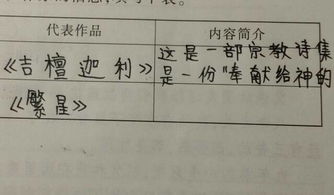 代表作品 内容简介
《吉檀迦利》 这是一部宗教诗集
是一份"奉献给神的
《繁星》